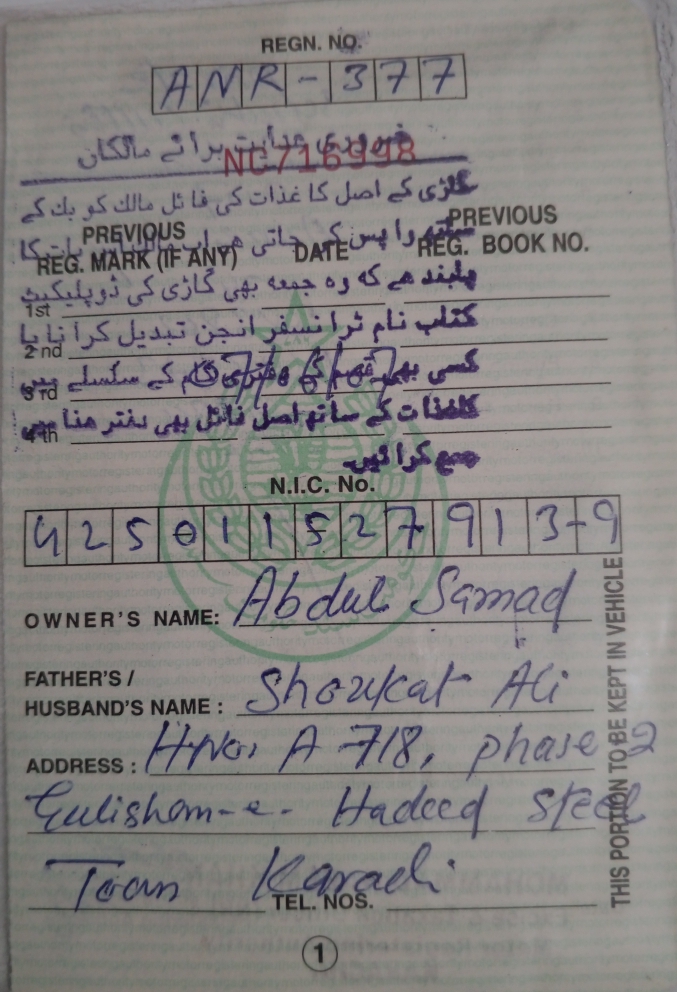 REGN. NO.
ANR-377
ضروری ہدایت برائے مالکان
NC716998
گاڑی کے اصل کاغذات کی فائل مالک کو بک کے
PREVIOUS
REG. MARK (IF ANY)
DATE
PREVIOUS
REG. BOOK NO.
ساتھ واپس کی جاتی ھے اب مالک اس بات کا
پابند ھے کہ وہ جمعہ بھی گاڑی کی ڈوپلیکیٹ
1st
کتاب نام ٹرانسفر انجن تبدیل کرانا یا
2nd
کسی بھی قسم کے دفتری کام کے سلسلے میں
3rd
کاغذات کے ساتھ اصل فائل بھی دفتر ھذا میں
4th
جمع کرائیں۔
N.I.C. No.
42501 1527913-9
OWNER'S NAME: Abdul Samad
FATHER'S /
HUSBAND'S NAME : Shoukat Ali
ADDRESS : H.No. A 718, phase 2
Gulishan-e- Hadeed Steel
Toan Karachi
TEL. NOS.
THIS PORTION TO BE KEPT IN VEHICLE
1